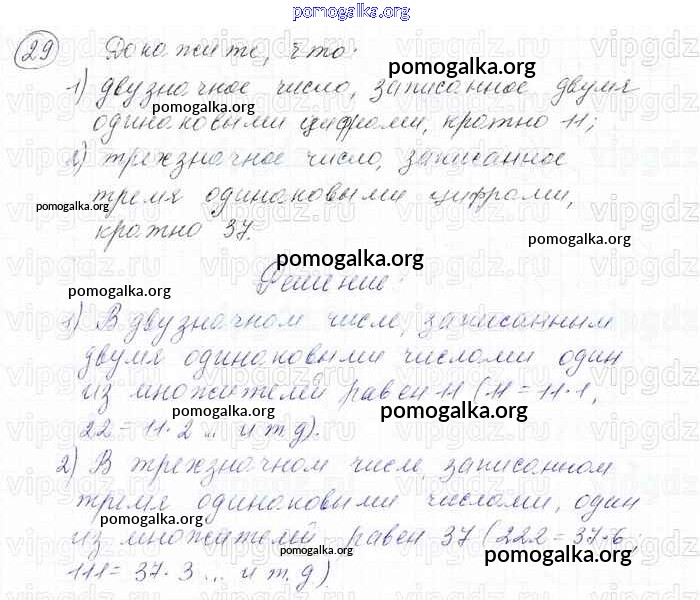 pomogalka.org
29 Докажите, что:
1) двузначное число, записанное двумя
одинаковыми цифрами, кратно 11;
2) трехзначное число, записанное
тремя одинаковыми цифрами,
кратно 37.
Решение:
1) В двузначном числе, записанным
двумя одинаковыми числами один
из множителей равен 11 (11 = 11·1,
22 = 11·2 ... и т.д).
2) В трехзначном числе, записанном
тремя одинаковыми числами, один
из множителей равен 37 (222 = 37·6;
111 = 37·3 ... и т.д)
pomogalka.org
pomogalka.org
pomogalka.org
pomogalka.org
pomogalka.org
pomogalka.org
pomogalka.org
pomogalka.org
pomogalka.org
pomogalka.org
pomogalka.org
pomogalka.org